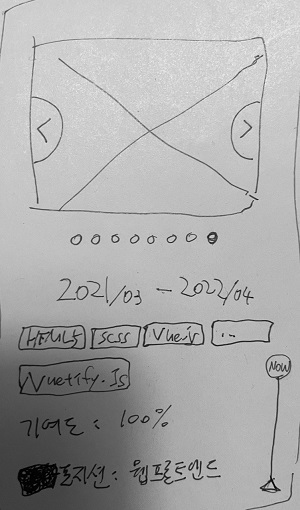 < >
2021/03 - 2022/04
HTML5 SCSS Vue.js ...
Vuetify.Js
NOW
기여도 : 100%
포지션 : 웹프론트엔드